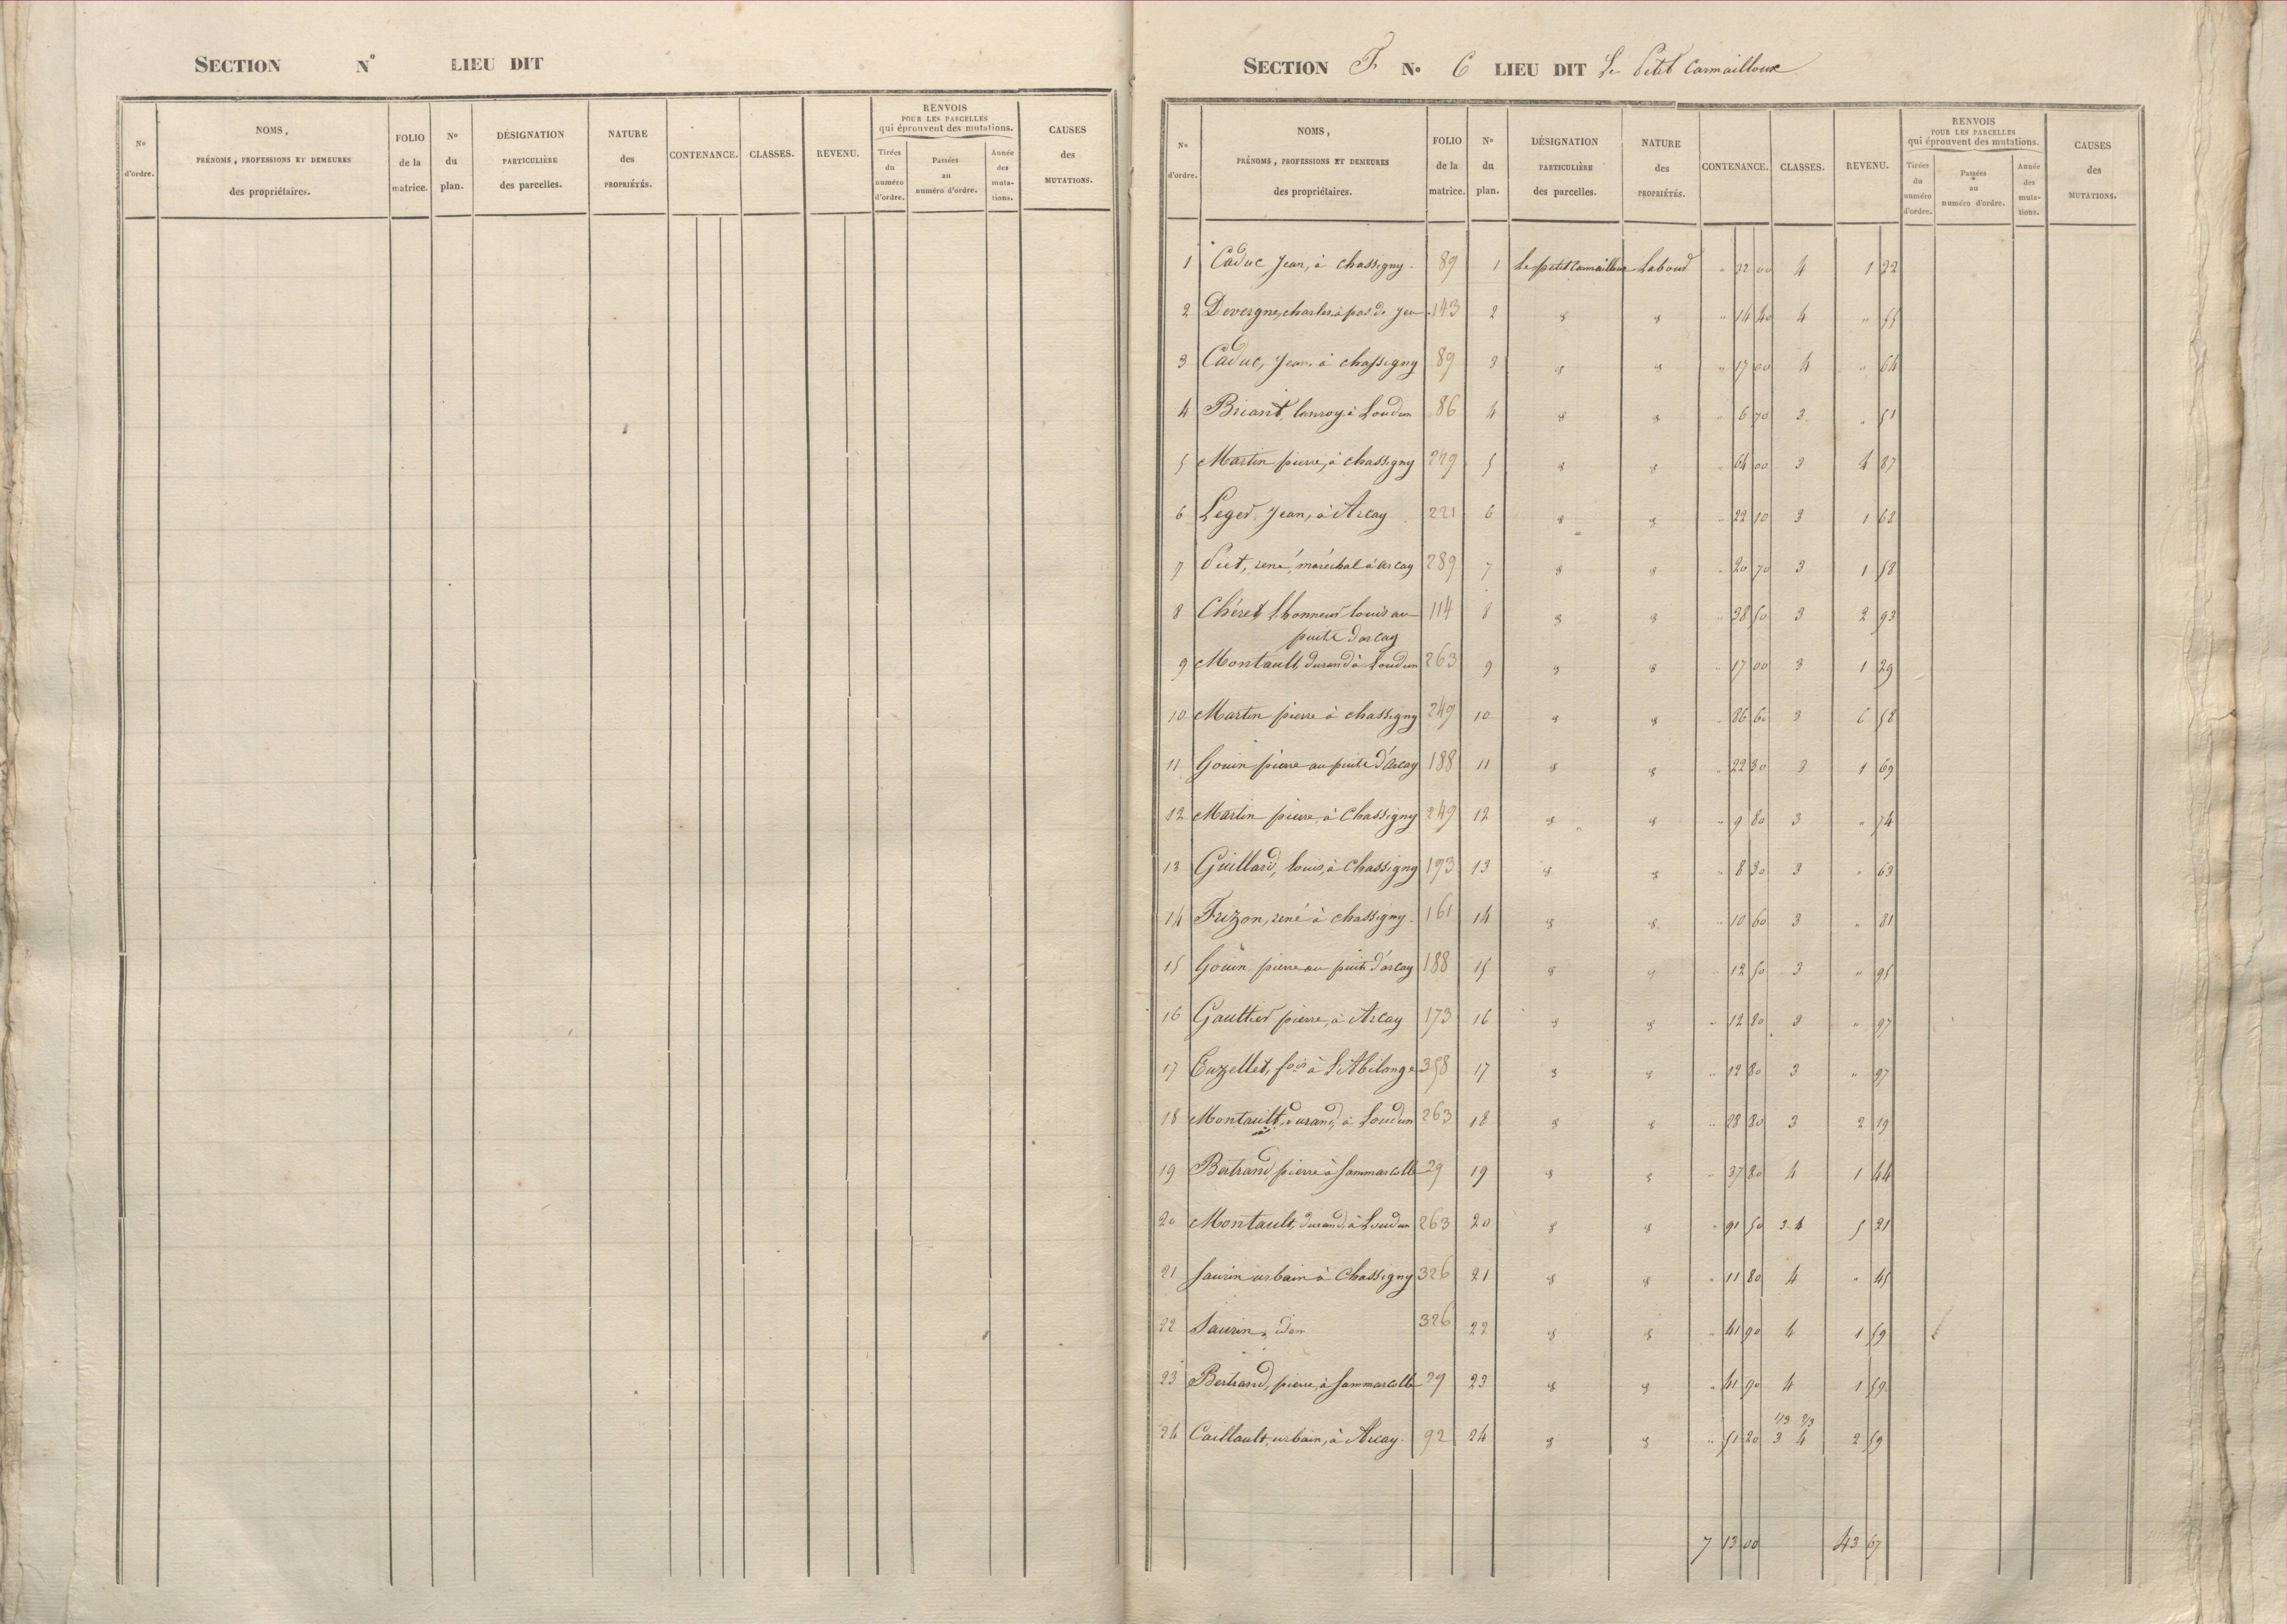 SECTION N° LIEU DIT
N° d'ordre. NOMS, PRÉNOMS, PROFESSIONS ET DEMEURES des propriétaires. FOLIO de la matrice. N° du plan. DÉSIGNATION PARTICULIÈRE des parcelles. NATURE des PROPRIÉTÉS. CONTENANCE. CLASSES. REVENU. RENVOIS POUR LES PARCELLES qui éprouvent des mutations. Tirées du numéro d'ordre. Passées au numéro d'ordre. Année des mutations. CAUSES des MUTATIONS.
SECTION F. N° 6 LIEU DIT Le Petit Carmailloux
N° d'ordre. NOMS, PRÉNOMS, PROFESSIONS ET DEMEURES des propriétaires. FOLIO de la matrice. N° du plan. DÉSIGNATION PARTICULIÈRE des parcelles. NATURE des PROPRIÉTÉS. CONTENANCE. CLASSES. REVENU. RENVOIS POUR LES PARCELLES qui éprouvent des mutations. Tirées du numéro d'ordre. Passées au numéro d'ordre. Année des mutations. CAUSES des MUTATIONS.
1 Caduc Jean, à chassigny. 89 1 Le petit Carmailloux Labour " 32 00 4 1 22
2 Devergne, charles à pas de Jeu 143 2 " " " 14 40 4 " 55
3 Caduc, Jean. à chassigny 89 3 " " " 17 00 4 " 64
4 Briant, lamroy à Loudun 86 4 " " " 6 70 3 " 51
5 Martin pierre, à chassigny 249 5 " " " 64 00 3 4 87
6 Leger, Jean, à Arcay 221 6 " " " 22 10 3 1 68
7 Piet, rené, maréchal à arcay 289 7 " " " 20 70 3 1 58
8 Chéret l'honneur louis au 114 8 " " " 38 50 3 2 93
puits d'arcay
9 Montault, durand à Loudun 263 9 " " " 17 00 3 1 29
10 Martin pierre à chassigny 249 10 " " " 86 60 3 6 58
11 Gouin pierre au puits d'Arcay 188 11 " " " 22 30 3 1 69
12 Martin pierre, à Chassigny 249 12 " " " 9 80 3 " 74
13 Guillard, louis, à Chassigny 193 13 " " " 8 30 3 " 63
14 Frizon, rené à chassigny. 161 14 " " " 10 60 3 " 81
15 Gouin pierre au puits d'arcay 188 15 " " " 12 50 3 " 95
16 Gaultier pierre, à Arcay 173 16 " " " 12 80 3 " 97
17 Euzellet, fois à L'Abilange 358 17 " " " 12 80 3 " 97
18 Montault, durand, à Loudun 263 18 " " " 28 80 3 2 19
19 Bertrand, pierre à Sammarcolle 29 19 " " " 37 80 4 1 44
20 Montault, durand à Loudun 263 20 " " " 91 50 3-4 5 21
21 Saurin urbain à Chassigny 326 21 " " " 11 80 4 " 45
22 Saurin, idem 326 22 " " " 41 90 4 1 59
23 Bertrand, pierre, à Sammarcolle 29 23 " " " 41 90 4 1 59
1/3 2/3
24 Caillault, urbain, à Arcay. 92 24 " " " 51 20 3 4 2 59
7 13 00 43 67